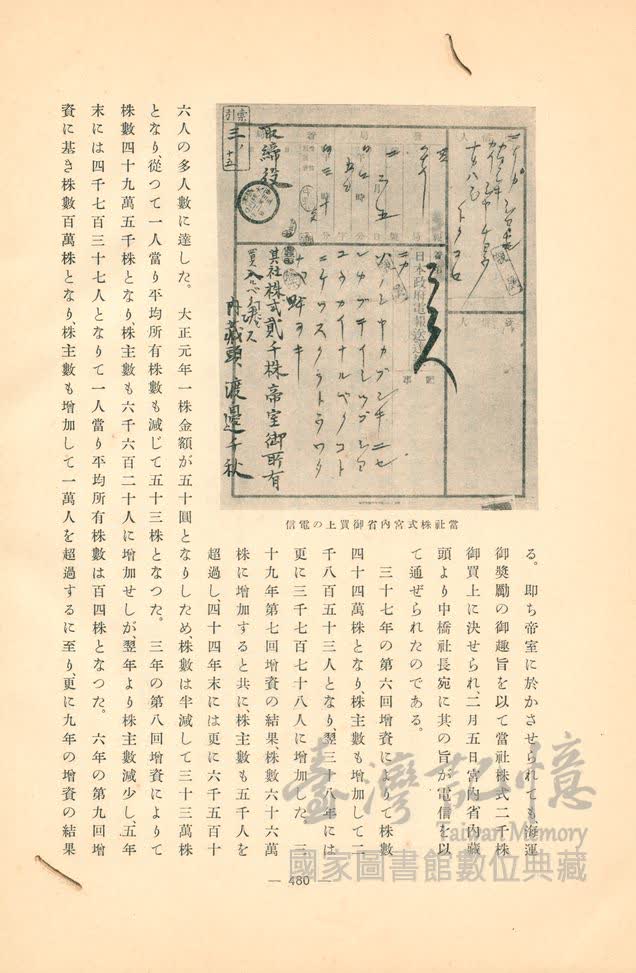 當社株式宮內省御買上の電信
其社株式貳千株帝室御所有
內藏頭 渡邊千秋
取締役
日本政府電報送達紙
る。卽ち帝室に於かさせられても、海運
御奬勵の御趣旨を以て當社株式二千株
御買上に決せられ、二月五日宮內省內藏
頭より中橋社長宛に其の旨が電信を以
て通ぜられたのである。
三十七年の第六回增資によりて株數
四十四萬株となり、株主數も增加して二
千八百五十三人となり、翌三十八年には
更に三千七百七十八人に增加した。三
十九年第七回增資の結果、株數六十六萬
株に增加すると共に、株主數も五千人を
超過し、四十四年末には更に六千五百十
六人の多人數に達した。大正元年一株金額が五十圓となりしため、株數は半減して三十三萬株
となり、從つて一人當り平均所有株數も減じて五十三株となつた。三年の第八回增資によりて
株數四十九萬五千株となり、株主數も六千六百二十人に增加せしが、翌年より株主數減少し、五年
末には四千七百三十七人となりて一人當り平均所有株數は百四株となつた。六年の第九回增
資に基き株數百萬株となり、株主數も增加して一萬人を超過するに至り、更に九年の增資の結果
— 480 —
臺灣記憶
Taiwan Memory
國家圖書館數位典藏